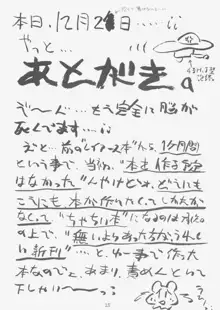 本日、12月21日‥‥‥¡¡
やっと…
あとがき。
ぐ〜ん‥‥もう完全に脳が
死んでます‥‥¡¡
えと…前の"イイナース本"から、1ヶ月間
という事で、当初、"本を作る予定
はなかった"んやけどね。どうにも
こうにも本が作りたくてしかたが
なくて"ちゃちい本"になるのは承知
の上で、"無いよりあった方がうれし
い新刊"…と、ゆー事で作った
本なのでと、あまり、責めんといて
下しゃい〜〜っ¡¡